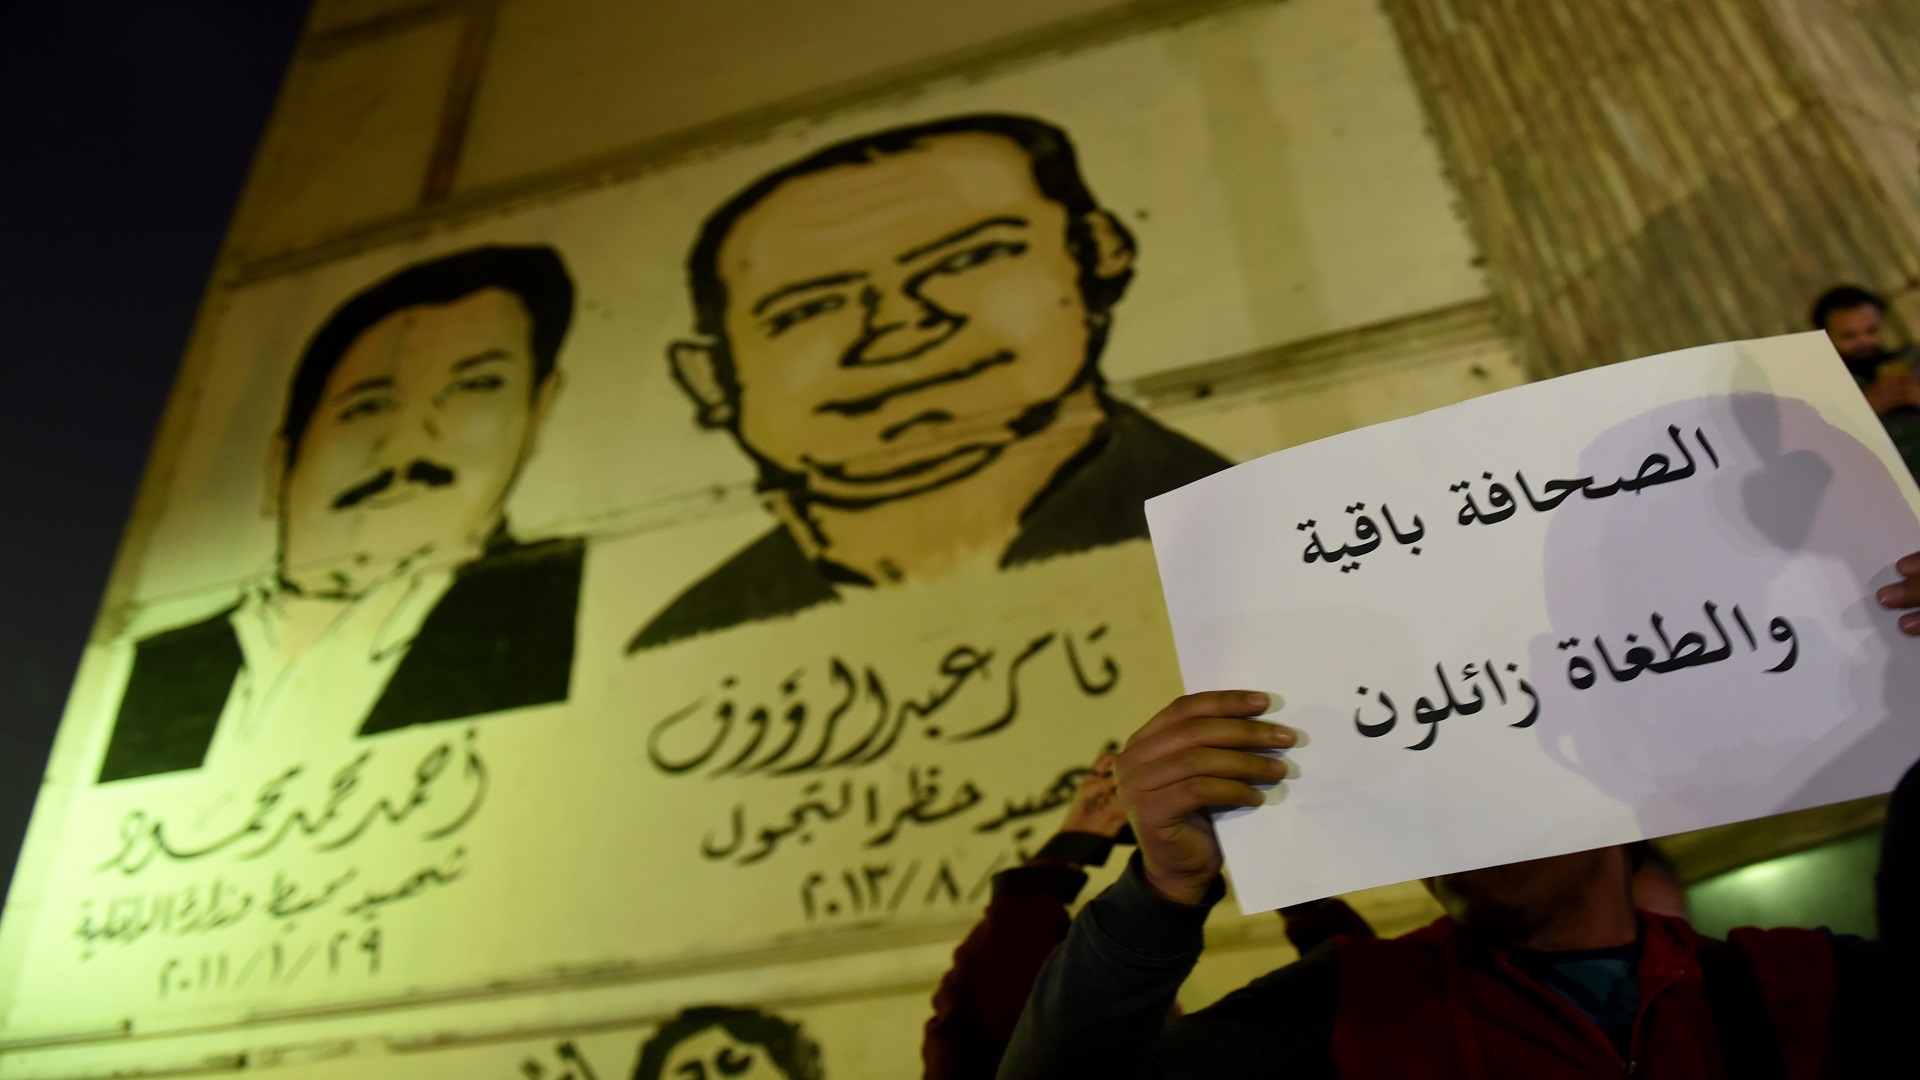 الصحافة باقية
والطغاة زائلون
تامر عبد الرؤوف
شهيد حظر التجول
أحمد محمد محمود
شهيد محيط وزارة الداخلية
٢٠١١/١/٢٩